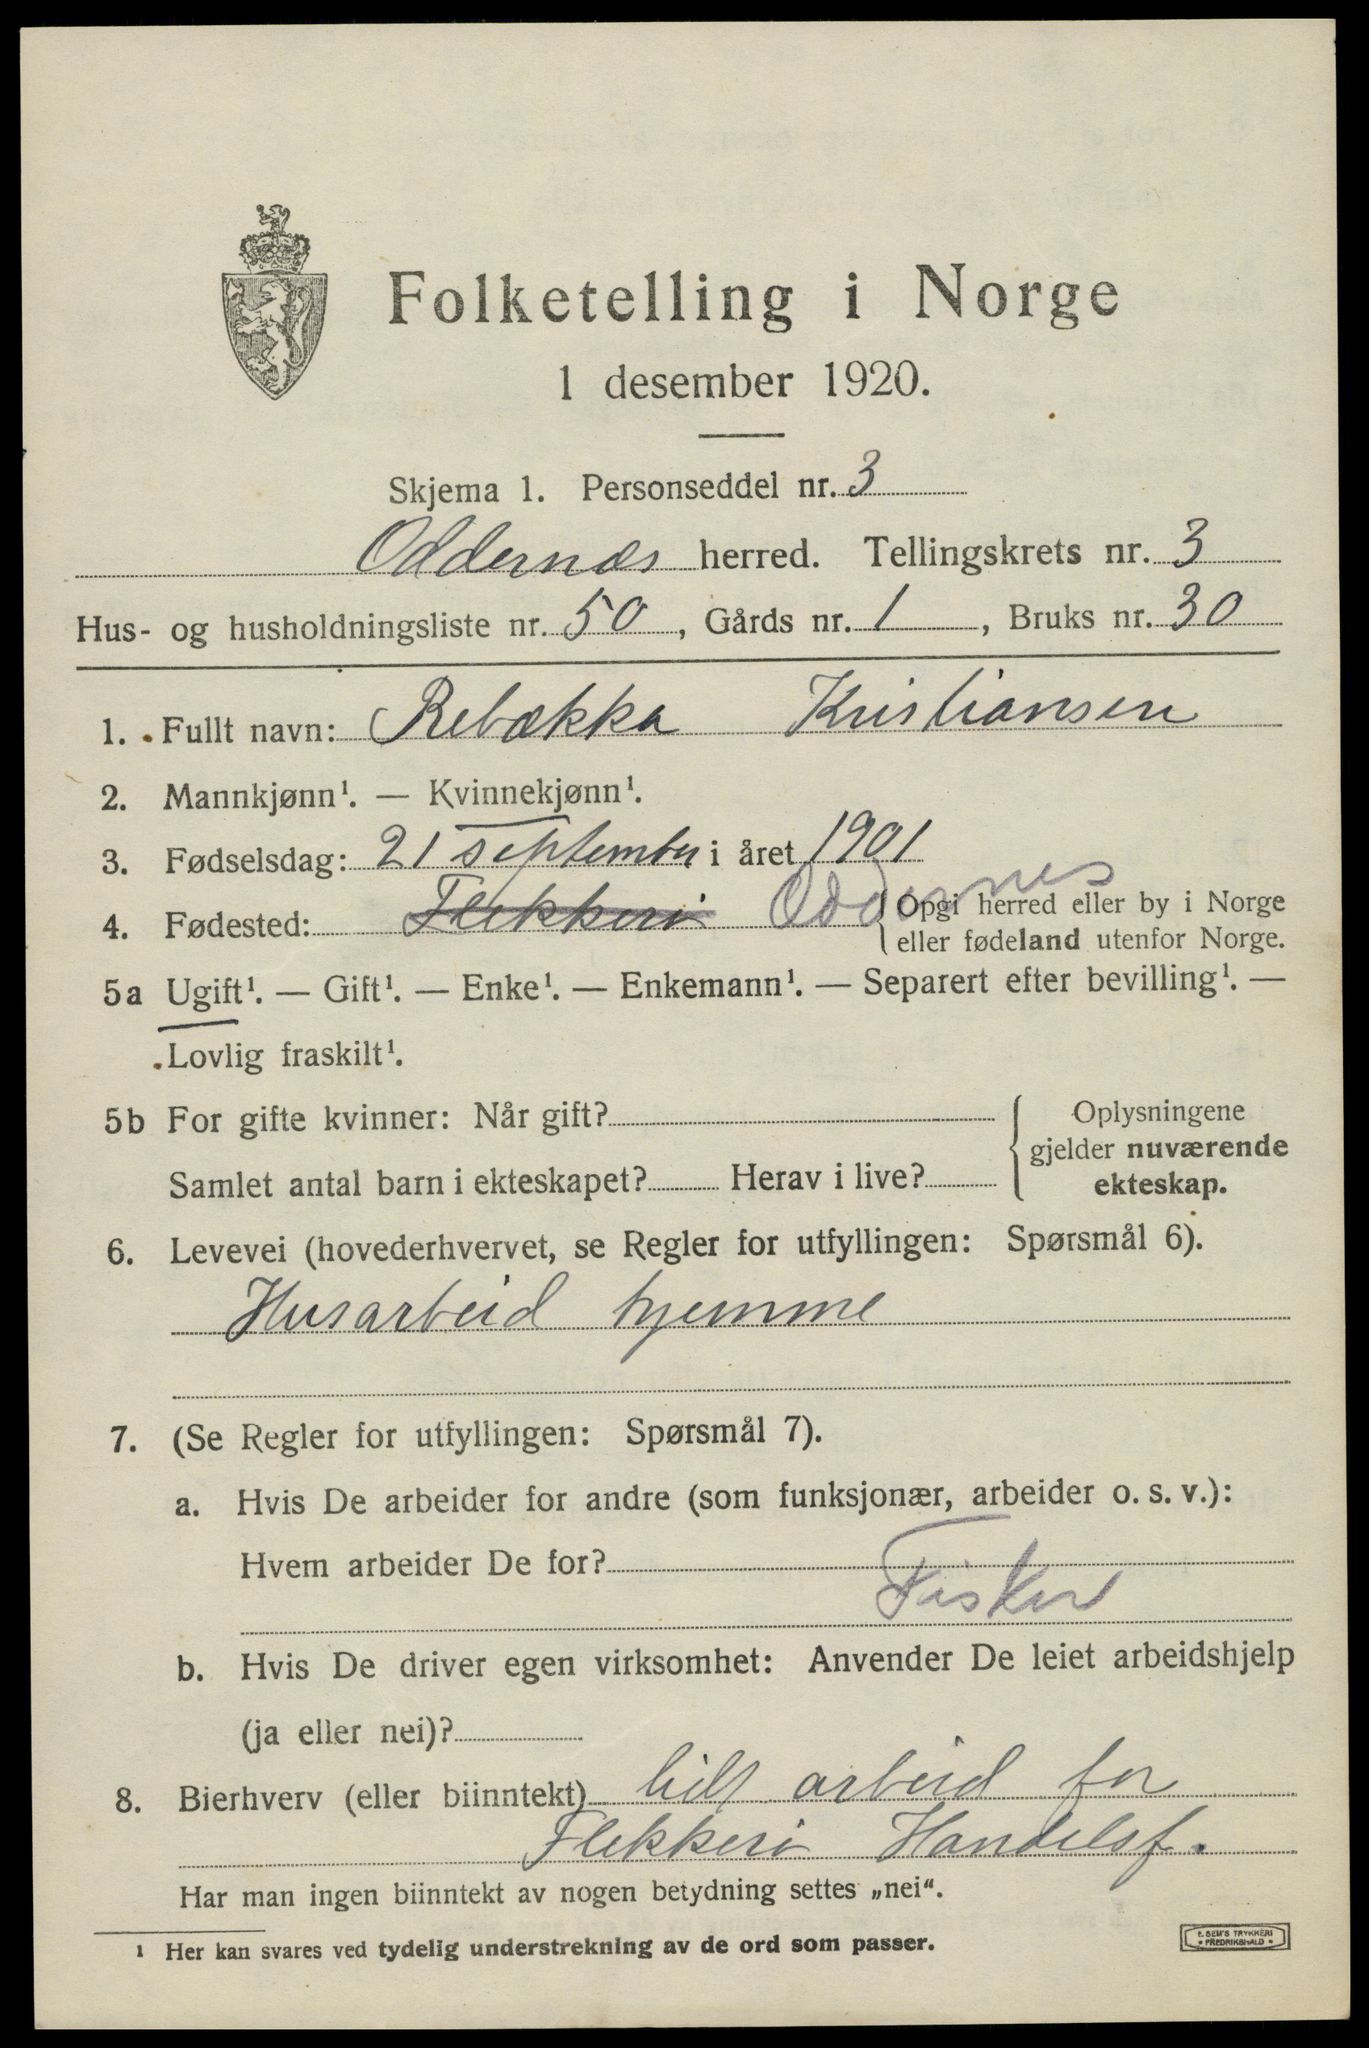 Folketelling i Norge
1 desember 1920.
Skjema 1. Personseddel nr. 3
Oddernæs herred. Tellingskrets nr. 3
Hus- og husholdningsliste nr. 50, Gårds nr. 1, Bruks nr. 30
1. Fullt navn: Rebækka Kristiansen
2. Mannkjønn¹. — Kvinnekjønn¹.
3. Fødselsdag: 21 september i året 1901
4. Fødested: Flekkerø Oddernes
Opgi herred eller by i Norge
eller fødeland utenfor Norge.
5a Ugift¹. — Gift¹. — Enke¹. — Enkemann¹. — Separert efter bevilling¹. —
Lovlig fraskilt¹.
5b For gifte kvinner: Når gift?
Samlet antal barn i ekteskapet? Herav i live?
Oplysningene
gjelder nuværende
ekteskap.
6. Levevei (hovederhvervet, se Regler for utfyllingen: Spørsmål 6).
Husarbeid hjemme
7. (Se Regler for utfyllingen: Spørsmål 7).
a. Hvis De arbeider for andre (som funksjonær, arbeider o. s. v.):
Hvem arbeider De for?
Fisker
b. Hvis De driver egen virksomhet: Anvender De leiet arbeidshjelp
(ja eller nei)?
8. Bierhverv (eller biinntekt) lidt arbeid for
Flekkerø Handelsf.
Har man ingen biinntekt av nogen betydning settes „nei“.
¹ Her kan svares ved tydelig understrekning av de ord som passer.
E. SEM'S TRYKKERI
FREDRIKSHALD